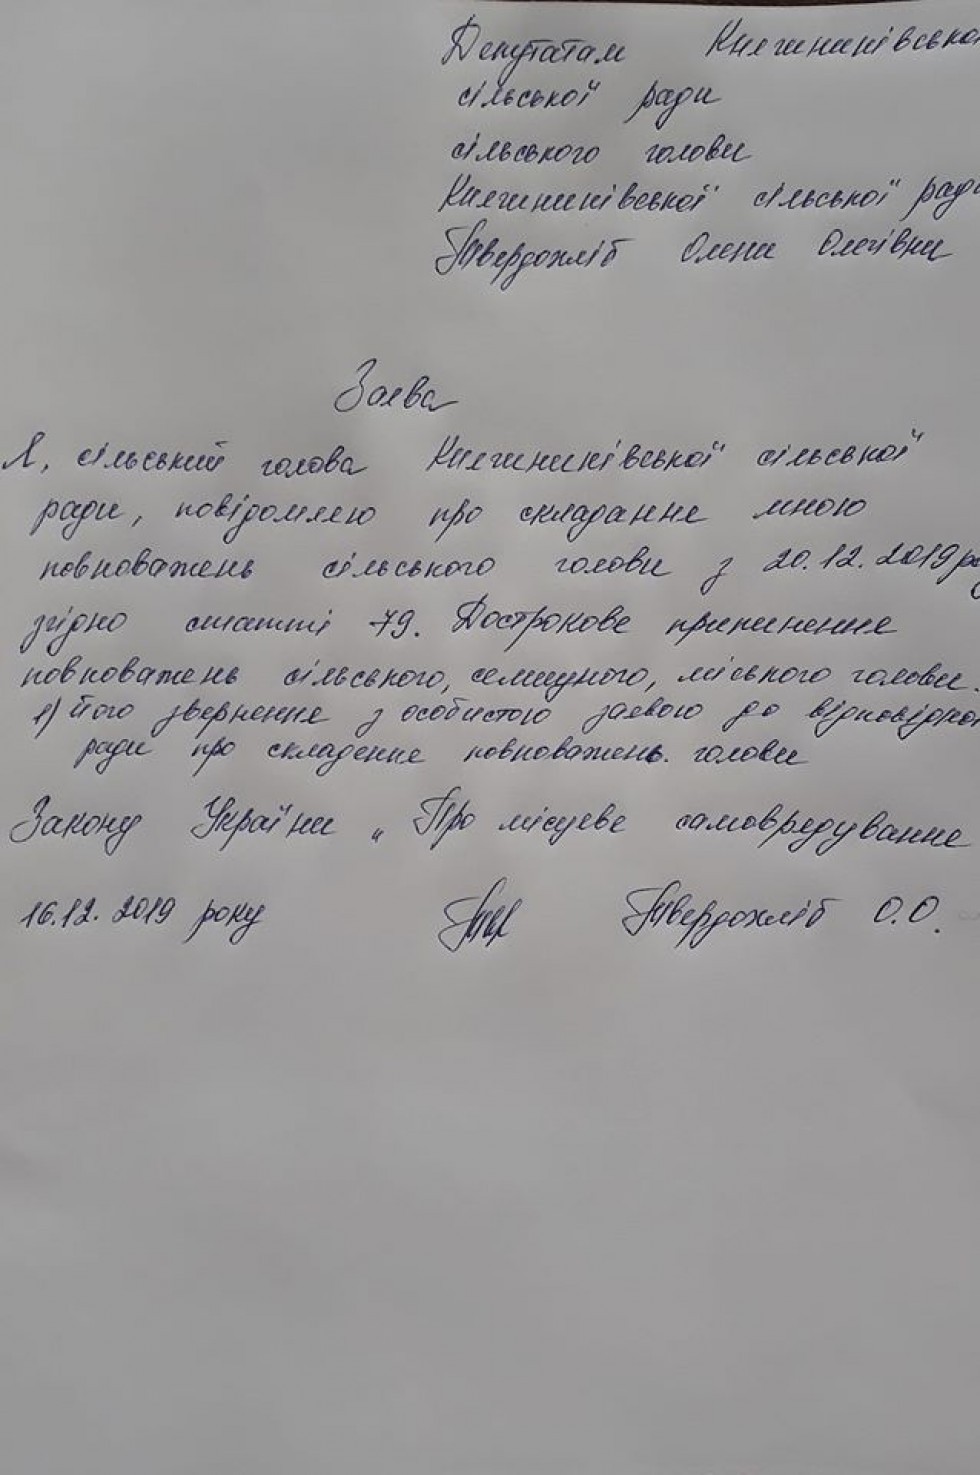 Депутатам Княгининівсько
сільської ради
сільського голови
Княгининівської сільської ради
Твердохліб Олени Олегівни
Заява
Я, сільський голова Княгининівської сільської
ради, повідомляю про складання мною
повноважень сільського голови з 20.12.2019 ро
згідно статті 79. Дострокове припинення
повноважень сільського, селищного, міського голови.
1) його звернення з особистою заявою до відповідно
ради про складення повноважень голови
Закону України „Про місцеве самоврядування
16.12.2019 року Твердохліб О.О.